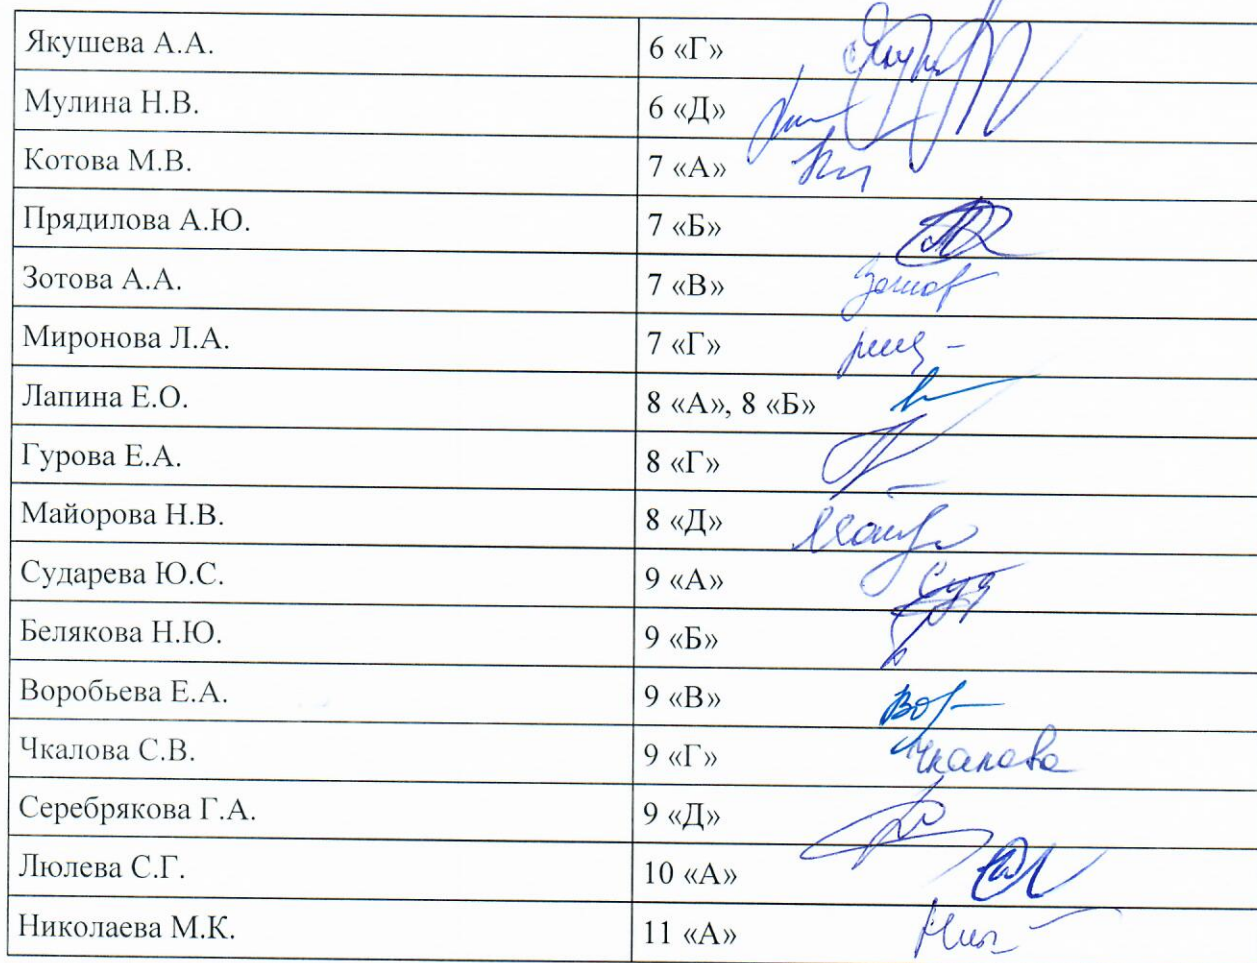 Якушева А.А. 6 «Г»
Мулина Н.В. 6 «Д»
Котова М.В. 7 «А»
Прядилова А.Ю. 7 «Б»
Зотова А.А. 7 «В»
Миронова Л.А. 7 «Г»
Лапина Е.О. 8 «А», 8 «Б»
Гурова Е.А. 8 «Г»
Майорова Н.В. 8 «Д»
Сударева Ю.С. 9 «А»
Белякова Н.Ю. 9 «Б»
Воробьева Е.А. 9 «В»
Чкалова С.В. 9 «Г» Чкалова
Серебрякова Г.А. 9 «Д»
Люлева С.Г. 10 «А»
Николаева М.К. 11 «А»